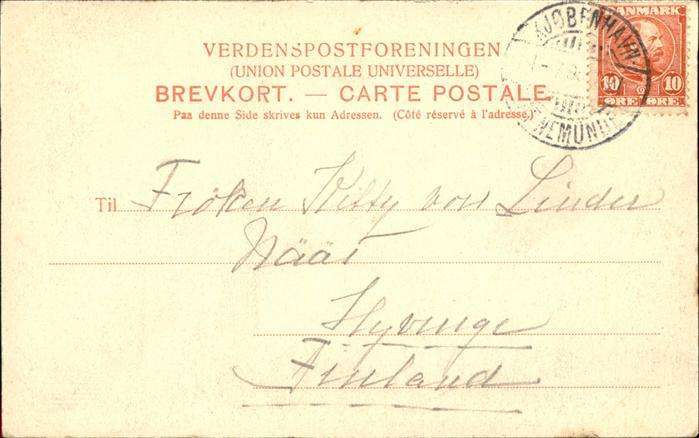 VERDENSPOSTFORENINGEN
(UNION POSTALE UNIVERSELLE)
BREVKORT. — CARTE POSTALE.
Paa denne Side skrives kun Adressen. (Côté réservé à l'adresse.)
DANMARK
10 10
ØRE ØRE
KJØBENHAVN
Til Fröken Kitty von Linder
Nääs
Hyvinge
Finland